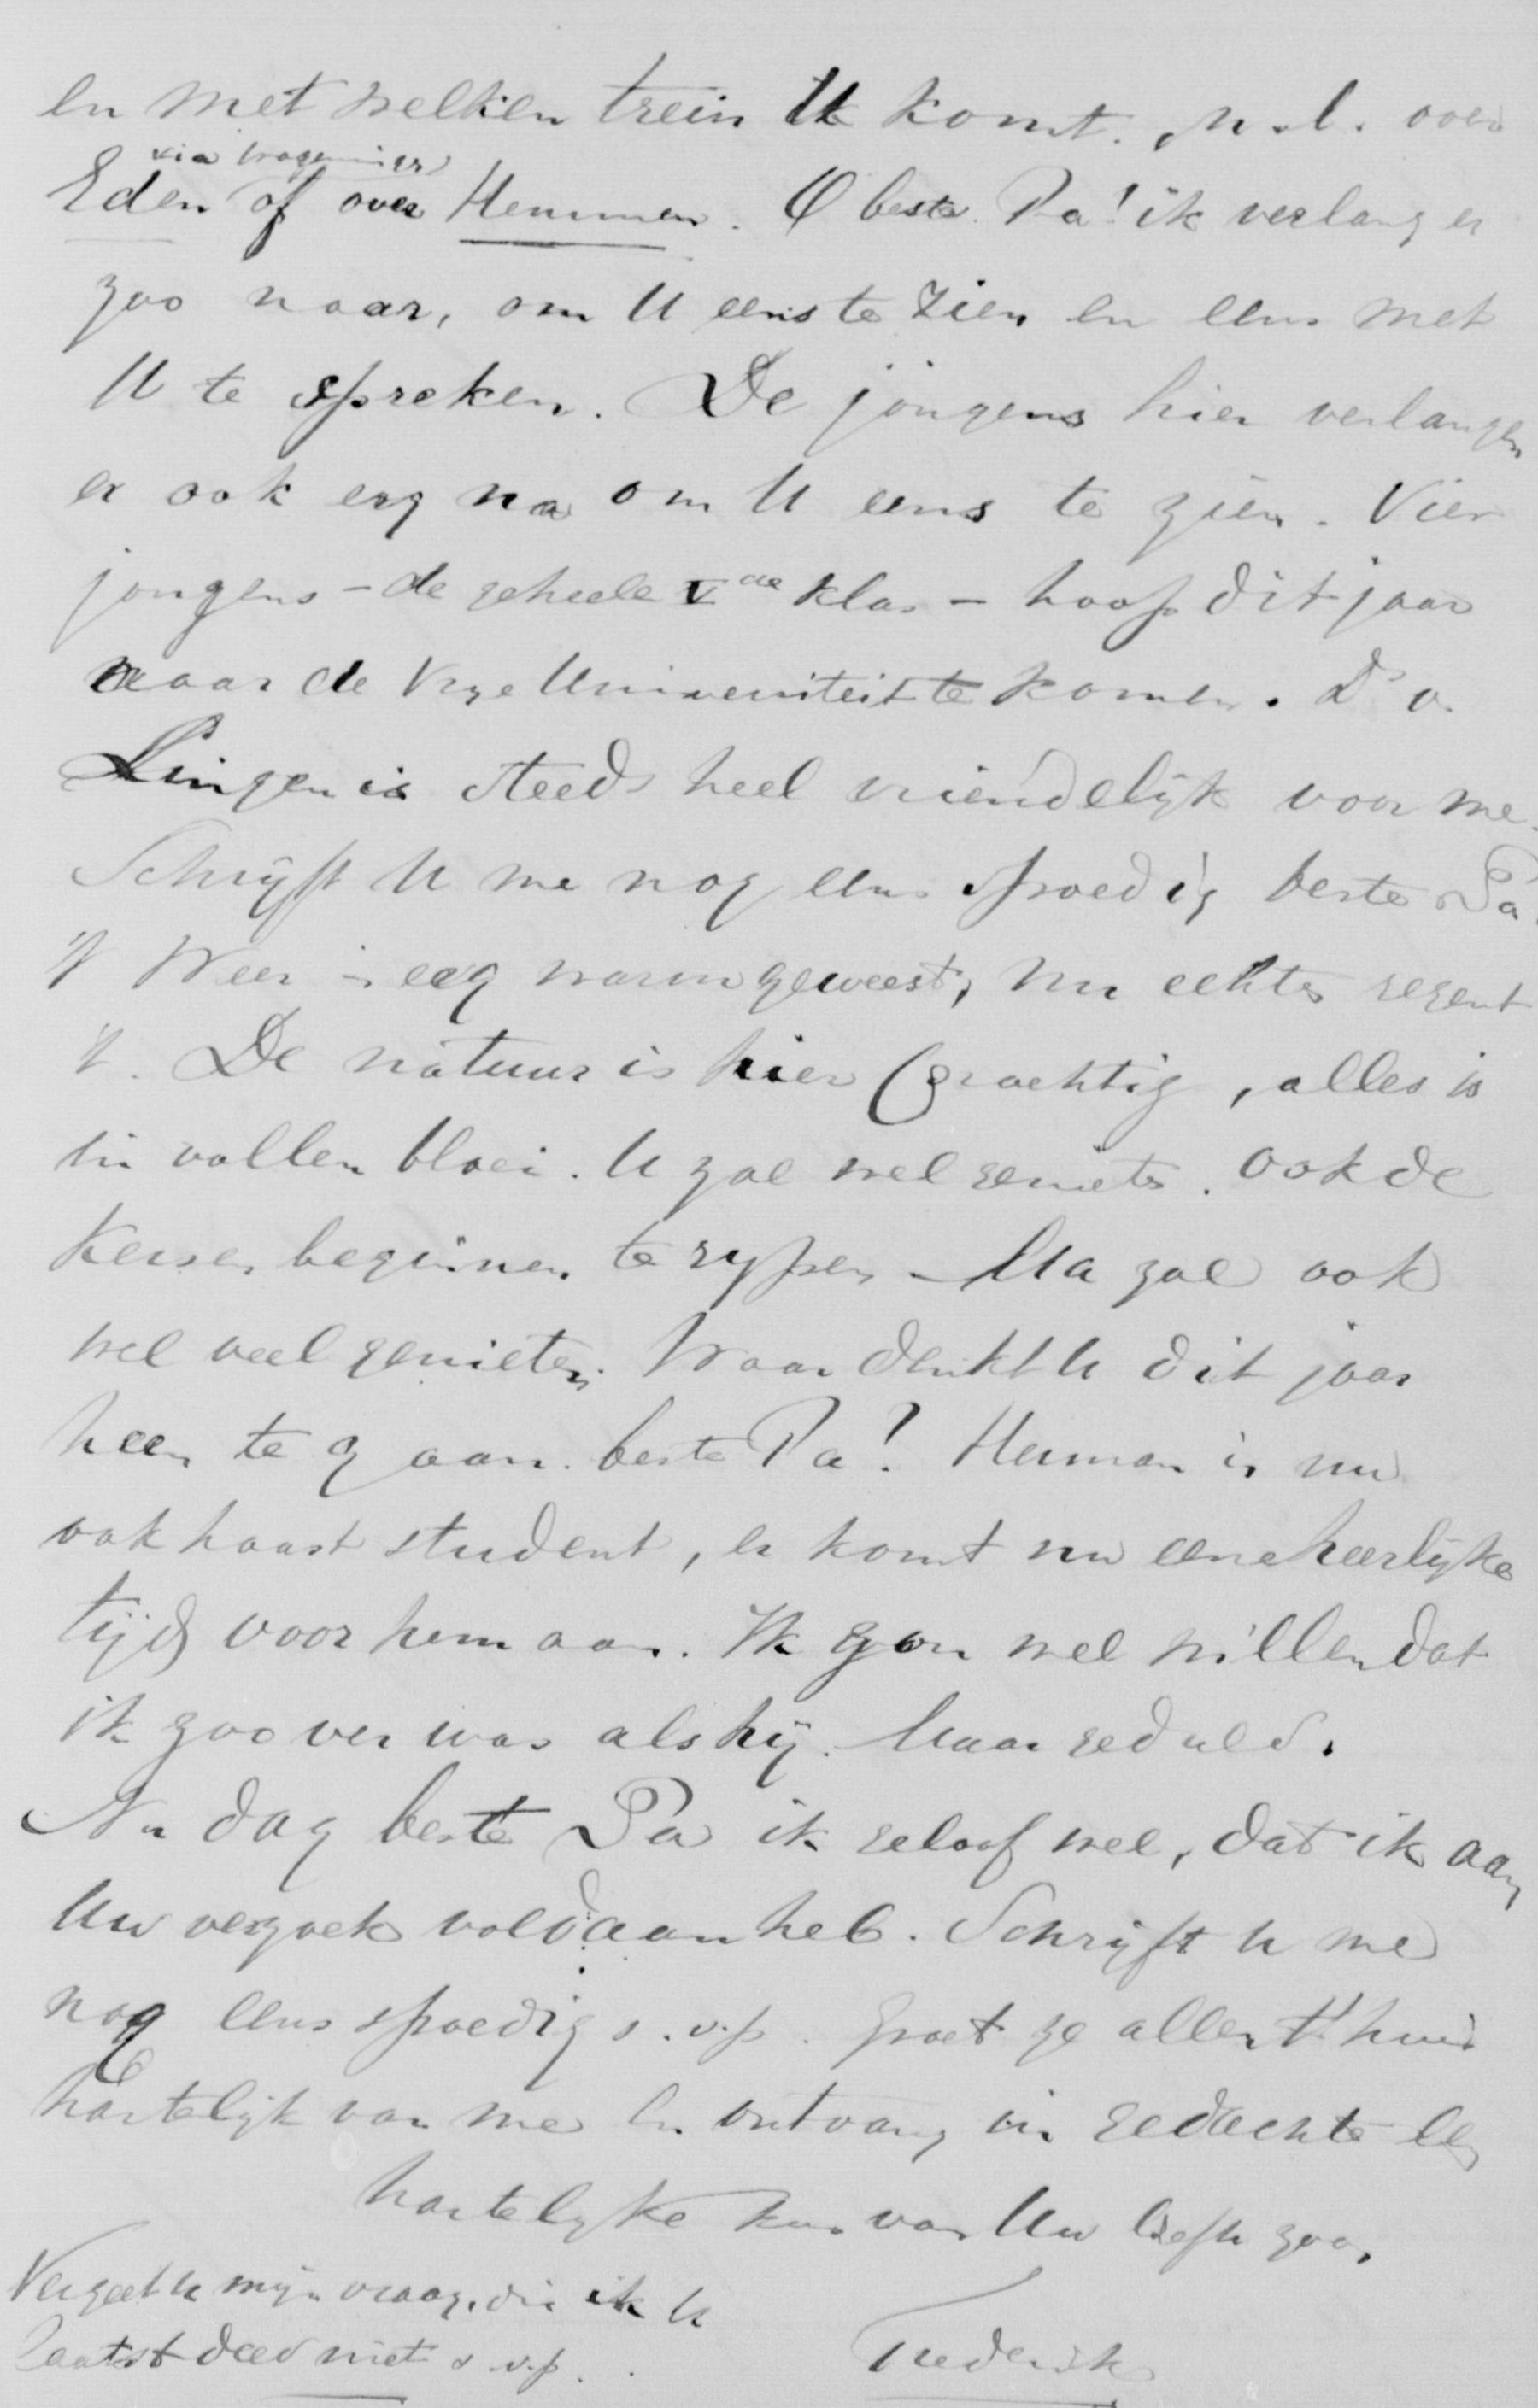 en met welken trein U komt. n.l. over
via Wageningen
Eden of over Hemmen. O beste Pa! ik verlang er
zoo naar, om U eens te zien en eens met
U te spreken. De jongens hier verlangen
er ook erg na om U eens te zien. Vier
jongens - de geheele Vde klas - hoop dit jaar
naar de Vrye Universiteit te komen. Ds v.
Lingen is steeds heel vriendelijk voor me.
Schrijft U me nog eens spoedig beste Pa.
't Weer is erg warm geweest, nu echter regent
't. De natuur is hier prachtig, alles is
in vollen bloei. U zal wel genieten. Ook de
Kersen beginnen te rypen - Ma zal ook
wel veel genieten. Waar denkt U dit jaar
heen te gaan beste Pa? Herman is nu
ook haast student, er komt nu eene heerlijke
tijd voor hem aan. Ik zou wel willen dat
ik zoo ver was als hij. Maar geduld.
Nu dag beste Pa ik geloof wel, dat ik aan
Uw verzoek voldaan heb. Schrijft U me
nog eens spoedig s.v.p. groet ze allen t'huis
hartelijk van me en ontvang in gedachte een
hartelyke kus van Uw liefh zoon,
Vergeet U mijn vraag, die ik U
laatst deed niet s.v.p.
Frederik